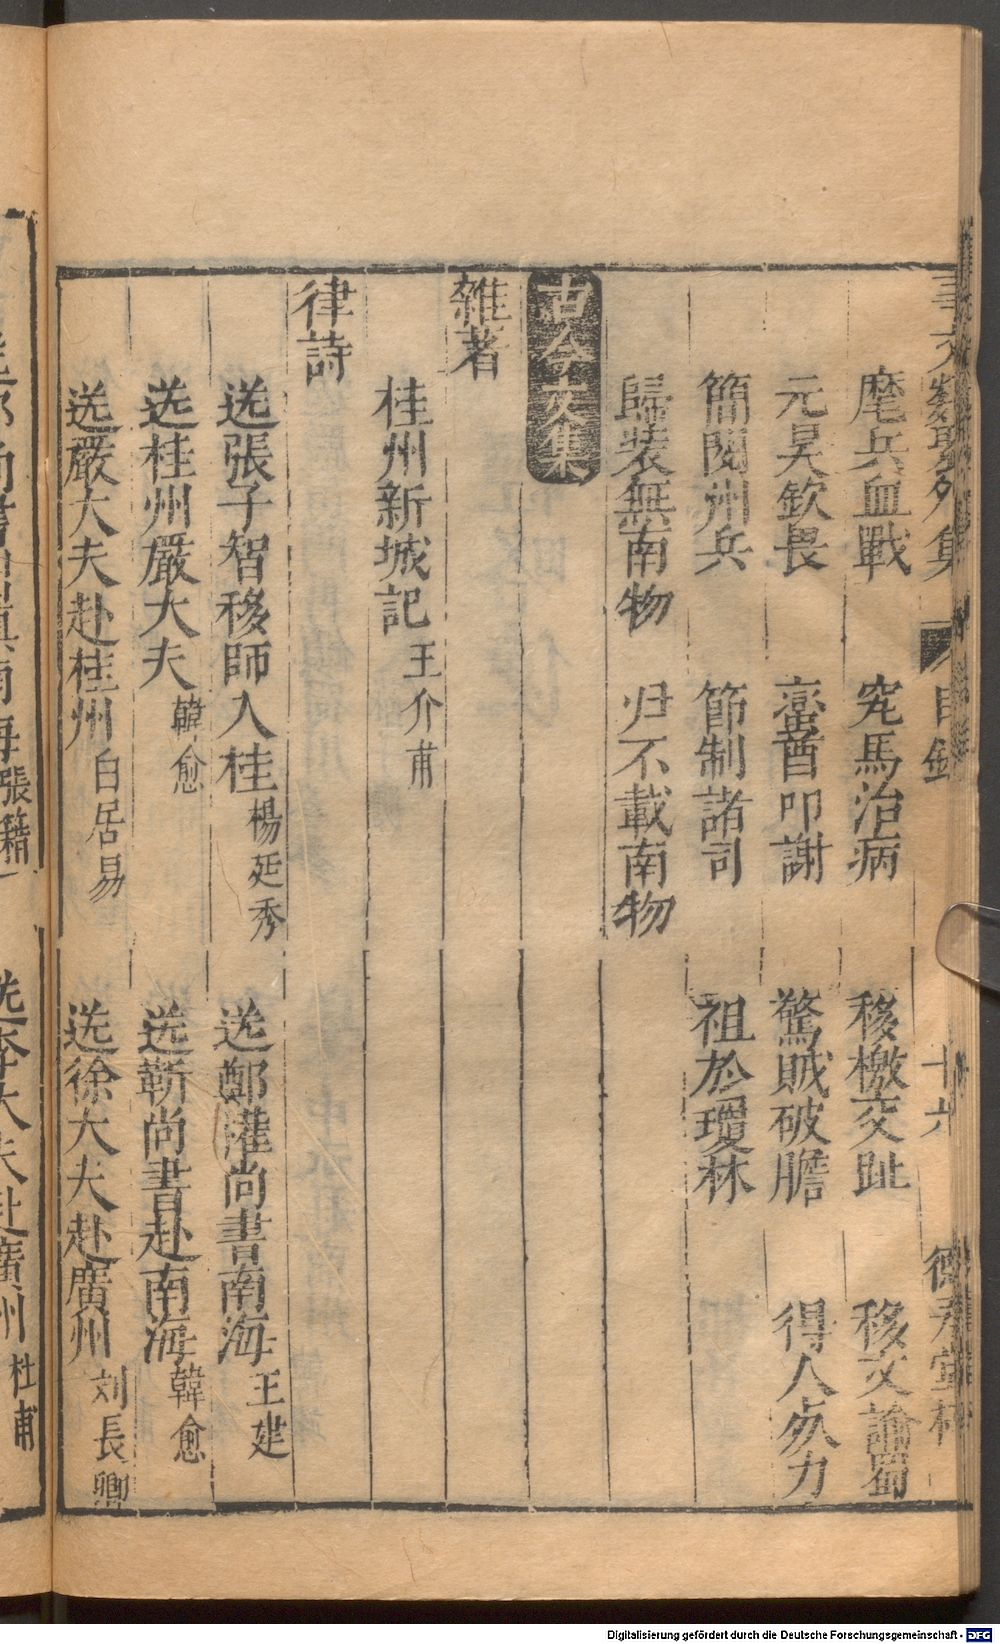 事文類聚外集 目錄 十六 德壽堂梓
麾兵血戰 究馬治病 移檄交趾 移文諭蜀
元昊欽畏 蠻酋叩謝 驚賊破膽 得人死力
簡閱州兵 節制諸司 祖於瓊林
歸裝無南物 归不載南物
古今文集
雜著
桂州新城記 王介甫
律詩
送張子智移師入桂 楊廷秀 送鄭灌尚書南海 王建
送桂州嚴大夫 韓愈 送靳尚書赴南海 韓愈
送嚴大夫赴桂州 白居易 送徐大夫赴廣州 刘長卿
南海 張籍 送李大夫赴廣州 杜甫
Digitalisierung gefördert durch die Deutsche Forschungsgemeinschaft - DFG